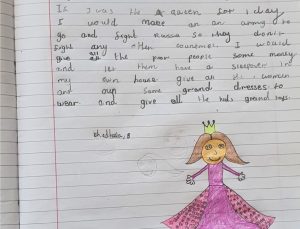 If I was the Queen for 1 day
I would make an an army to
go and fight Russia so they don't
fight any other countries. I would
give all the poor people some money
and let them have a sleepover in
my own house give all the women
and our some grand dresses to
wear and give all the kids grand toys.